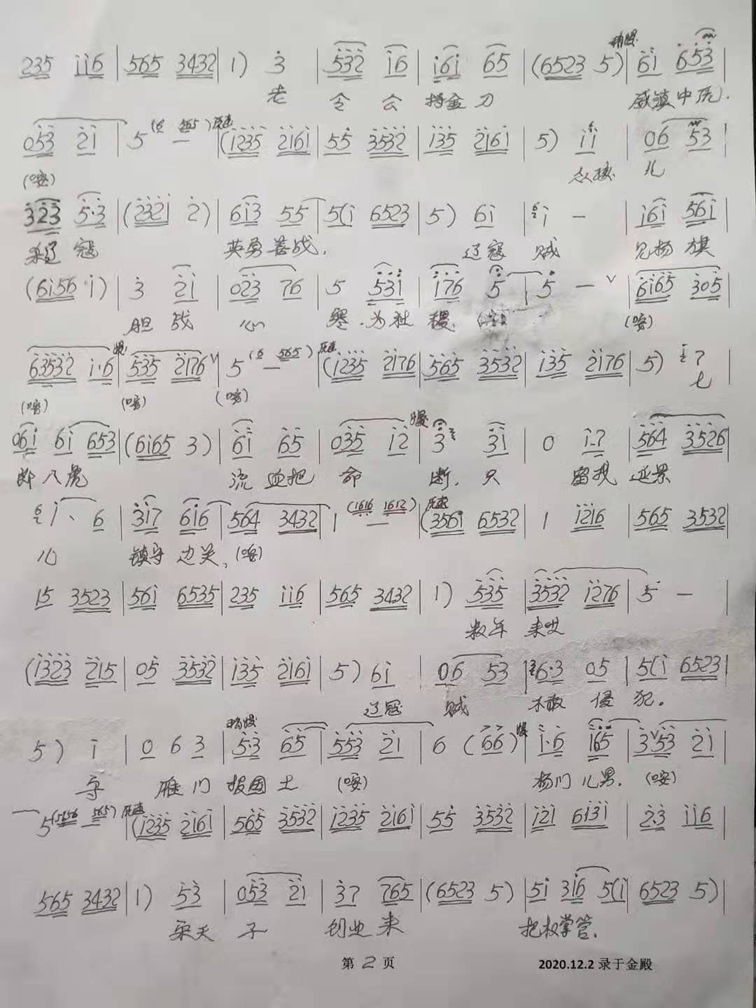 235 i i 6 | 565 3432 | 1) 3 | 532 i6 | i6i 65 | (6523 5) | 6i 653 |
老 令公 持金刀 威镇中原.
053 2i | 5 — | (i235 2i6i | 55 3532 | i35 2i6i | 5) ii | 06 53 |
(嗯) 众孩 儿
323 5·3 | (232i 2) | 6i3 55 | 5(i 6523 | 5) 6i | i — | i6i 56i |
杀辽 寇 英勇善战. 辽寇 贼 见杨 旗
(6i56 i) | 3 2i | 023 76 | 5 53i | i76 5 | 5 — | 6i65 305 |
胆 战 心 寒. 为社 稷 (嗯)
63532 i·6 | 535 2i76 | 5 — | (i235 2i76 | 565 3532 | i35 2i76 | 5) 7
(嗯) (嗯) (嗯) 七
06i 6i 653 | (6i65 3) | 6i 65 | 035 i2 | 3 3i | 0 i·7 | 564 3526 |
郎八虎 流血把 命 断. 只 留我 延景
i· 6 | 3i7 6i6 | 564 3432 | 1 — | (356i 6532 | 1 i2i6 | 565 3532 |
儿 镇守 边关, (嗯)
i5 3523 | 56i 6535 | 235 i i 6 | 565 3432 | 1) 535 | 3532 i276 | 5 — |
数年 来
(i323 2i5 | 05 3532 | i35 2i6i | 5) 6i | 06 53 | 6·3 05 | 5(i 6523 |
辽寇 贼 不敢 侵 犯.
5) i | 0 6 3 | 53 65 | 553 2i | 6 (66) | i·6 i65 | 3 53 2i |
守 雁门 报国土 (嗯) 杨门儿男. (嗯)
5 — | (i235 2i6i | 565 3532 | i235 2i6i | 55 3532 | i2i 6i3i | 2·3 i i 6 |
565 3432 | 1) 53 | 053 2i | 37 765 | (6523 5) | 5i 3i6 5(i | 6523 5) |
宋天 子 创业 来 把权掌管.
第 2 页 2020.12.2 录于金殿